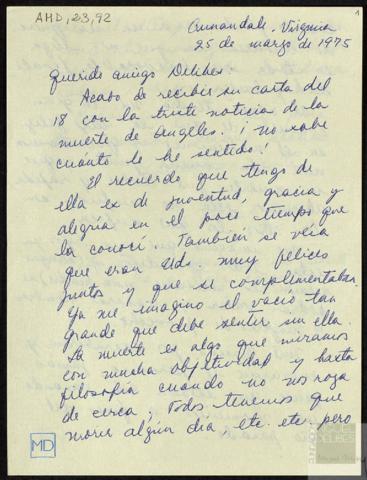 AMD, 23, 92
1
Annandale, Virginia
25 de marzo de 1975
Querido amigo Delibes
Acabo de recibir su carta del
18 con la triste noticia de la
muerte de Angeles. ¡ No sabe
cuánto lo he sentido!
El recuerdo que tengo de
ella es de juventud, gracia y
alegría en el poco tiempo que
la conocí. También se veía
que eran Uds. muy felices
juntos y que se complementaban.
Ya me imagino el vacío tan
grande que debe sentir sin ella.
La muerte es algo que miramos
con mucha objetividad y hasta
filosofía cuando no nos roza
de cerca; Todos tenemos que
morir algún día etc. etc. pero
MD
DELIBES